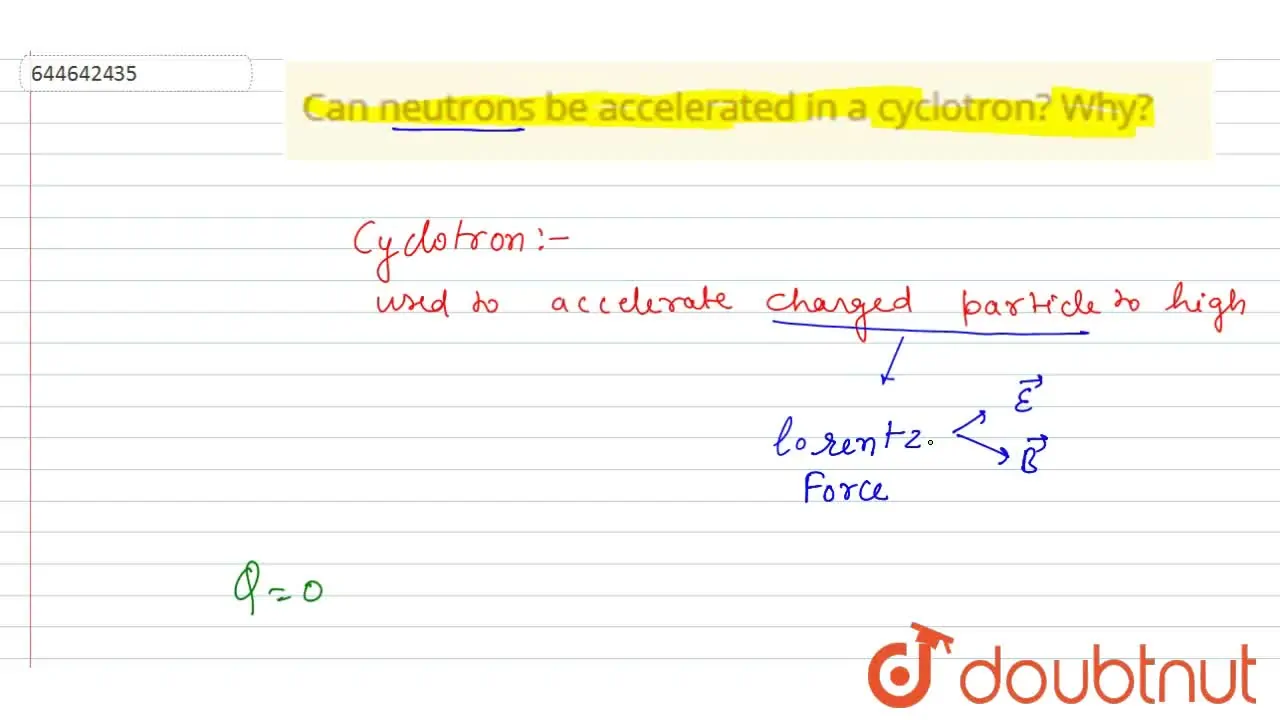 644642435
Can neutrons be accelerated in a cyclotron? Why?
Cyclotron :-
used to accelerate charged particle to high
E
Lorentz.
B
Force
Q = 0
doubtnut